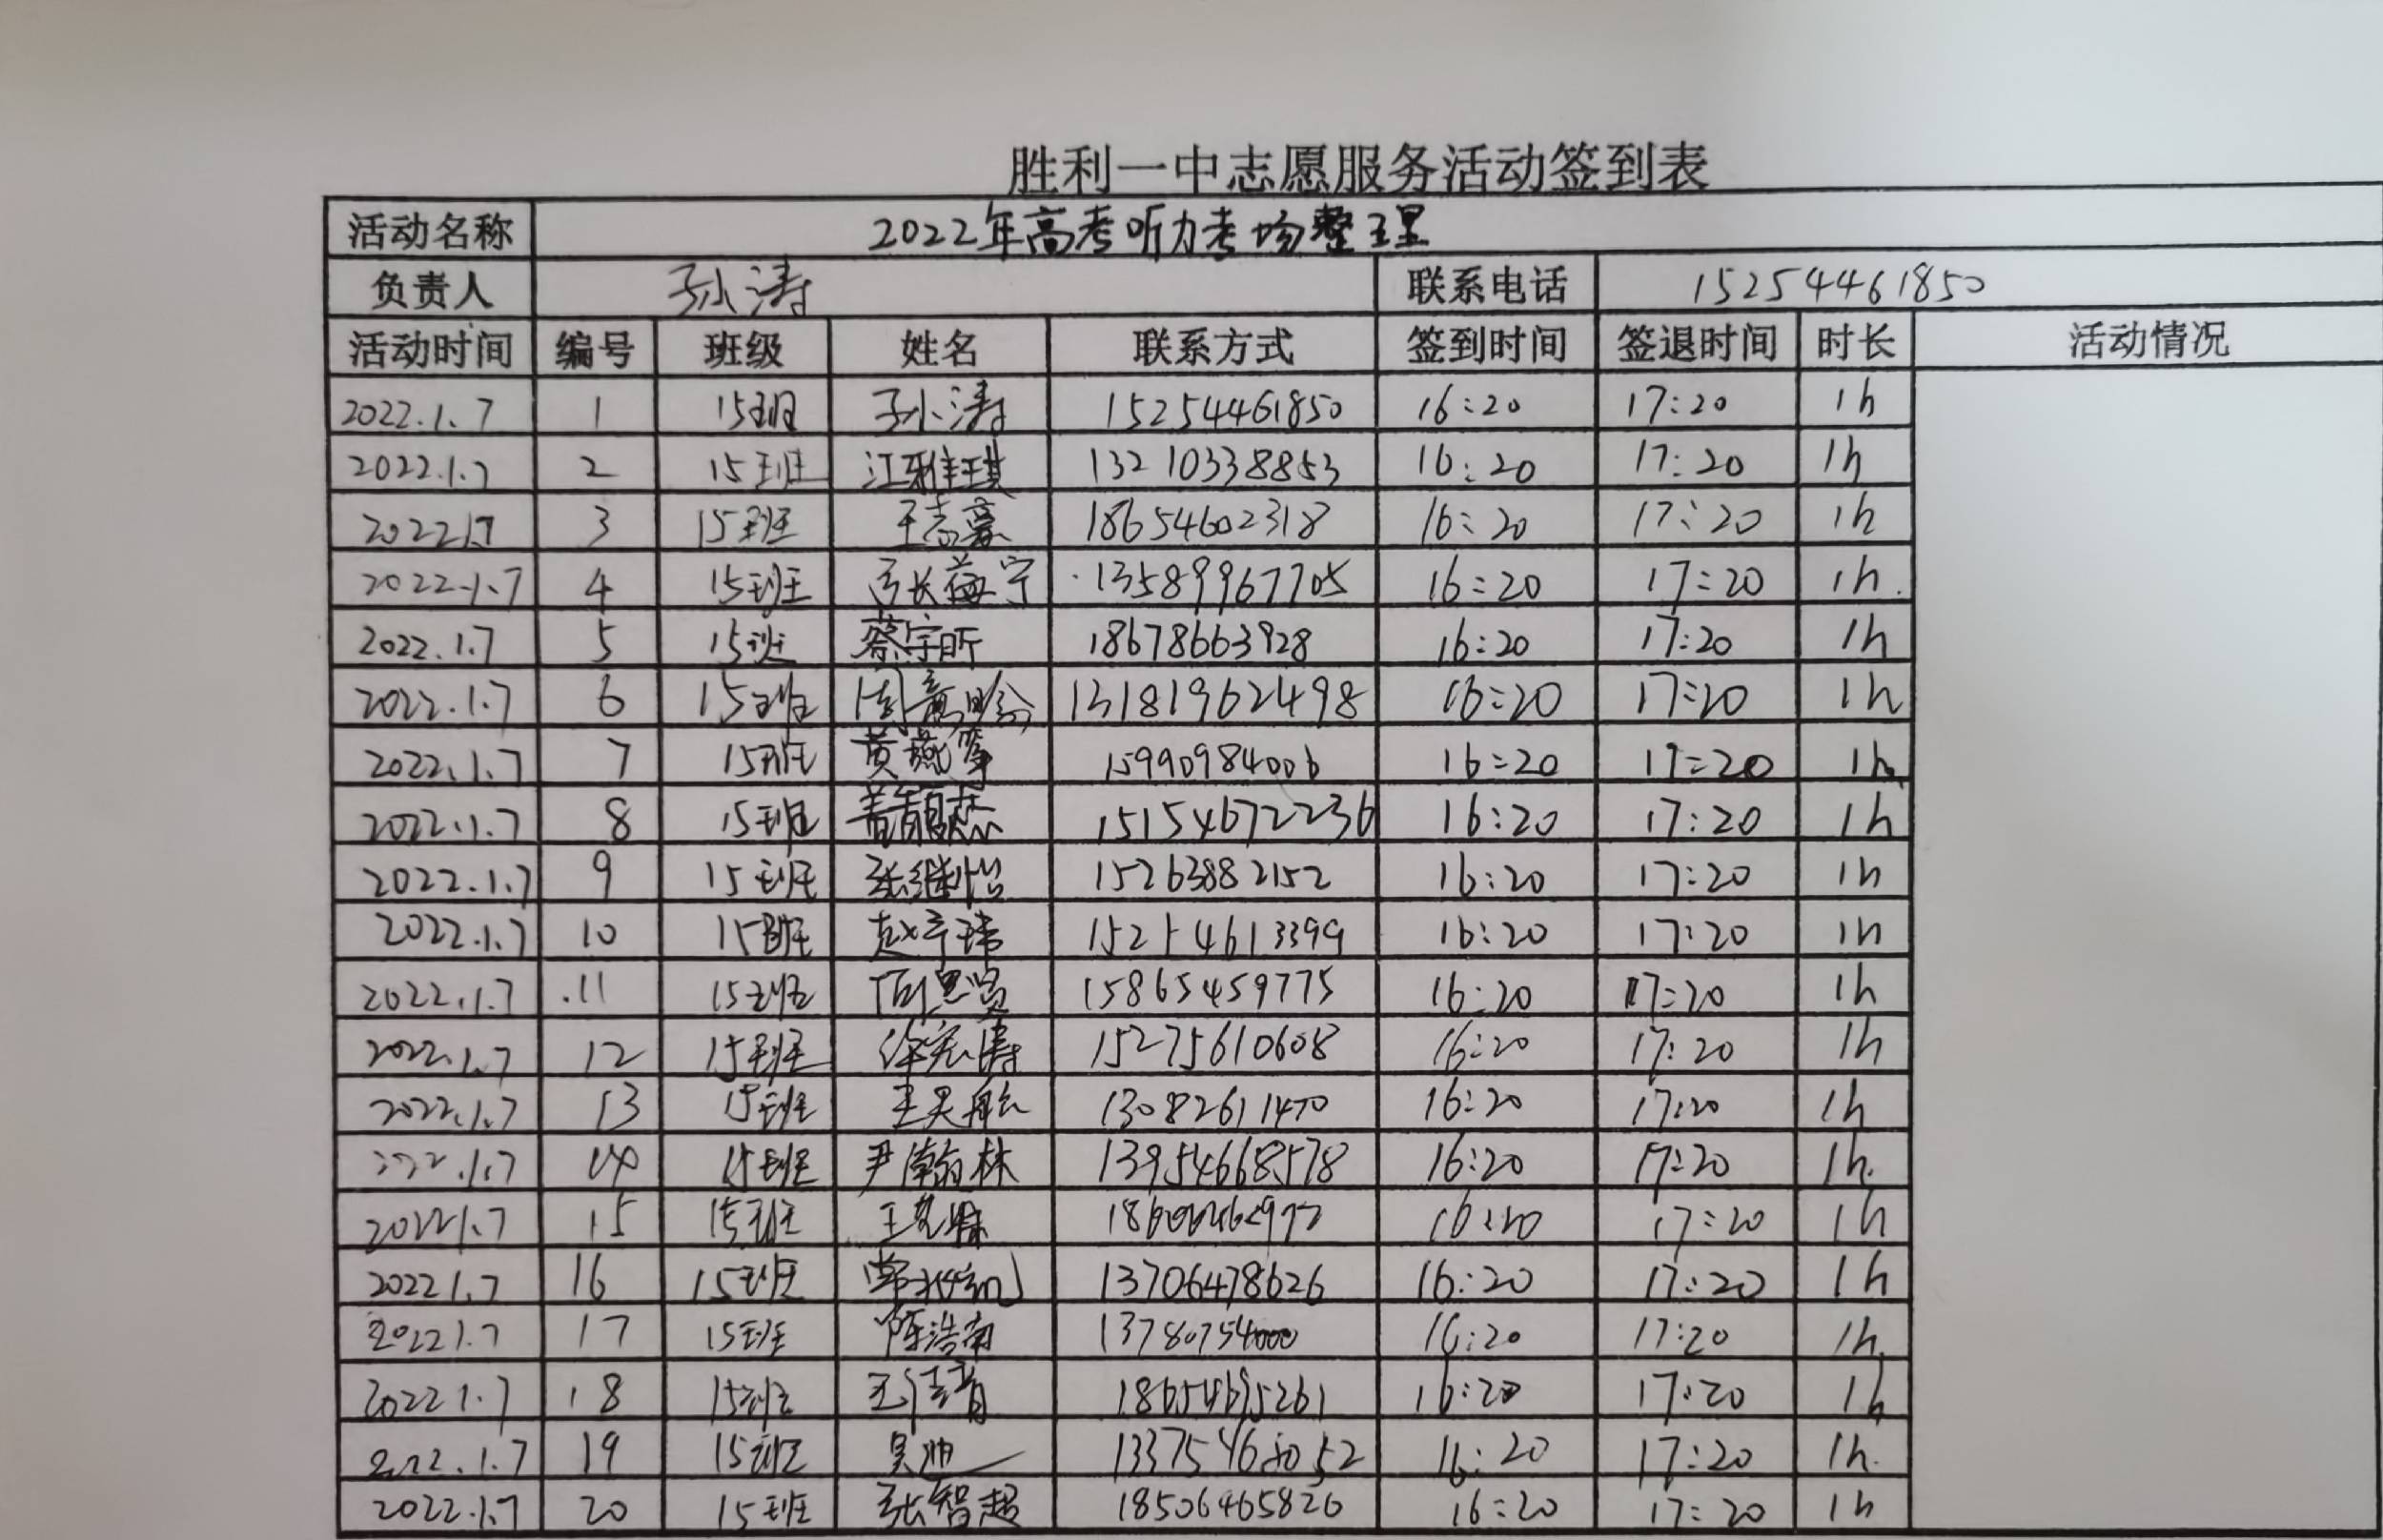 胜利一中志愿服务活动签到表
活动名称 2022年高考听力考场整理
负责人 孙涛 联系电话 15254461850
活动时间 编号 班级 姓名 联系方式 签到时间 签退时间 时长 活动情况
2022.1.7 1 15班 孙涛 15254461850 16:20 17:20 1h
2022.1.7 2 15班 江雅琪 13210338853 16:20 17:20 1h
2022.1.7 3 15班 王志豪 18654602318 16:20 17:20 1h
2022.1.7 4 15班 张薇宁 13589967705 16:20 17:20 1h.
2022.1.7 5 15班 蔡宇昕 18678663928 16:20 17:20 1h
2022.1.7 6 15班 13181962498 16:20 17:20 1h
2022.1.7 7 15班 15990984006 16:20 17:20 1h
2022.1.7 8 15班 15154672236 16:20 17:20 1h
2022.1.7 9 15班 张继怡 15263882152 16:20 17:20 1h
2022.1.7 10 15班 赵宇琦 15254613399 16:20 17:20 1h
2022.1.7 11 15班 15865459775 16:20 17:20 1h
2022.1.7 12 15班 徐宪涛 15275610608 16:20 17:20 1h
2022.1.7 13 15班 王昊航 13082611470 16:20 17:20 1h
2022.1.7 14 15班 尹瀚林 13954668578 16:20 17:20 1h.
2022.1.7 15 15班 16:20 17:20 1h
2022.1.7 16 15班 13706478626 16:20 17:20 1h
2022.1.7 17 15班 陈浩南 13780754000 16:20 17:20 1h.
2022.1.7 18 15班 18654695261 16:20 17:20 1h
2022.1.7 19 15班 吴迪 13375468052 16:20 17:20 1h.
2022.1.7 20 15班 张智超 18506465826 16:20 17:20 1h